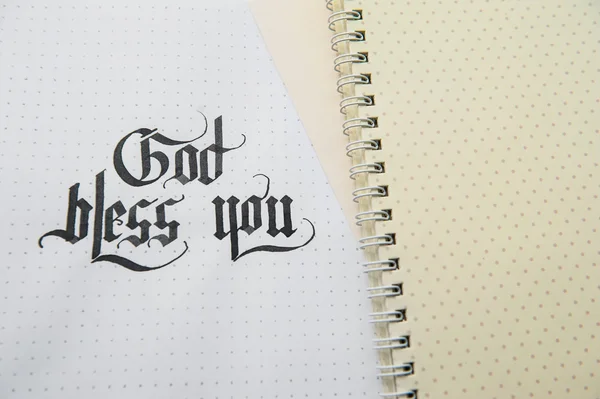 God
bless you